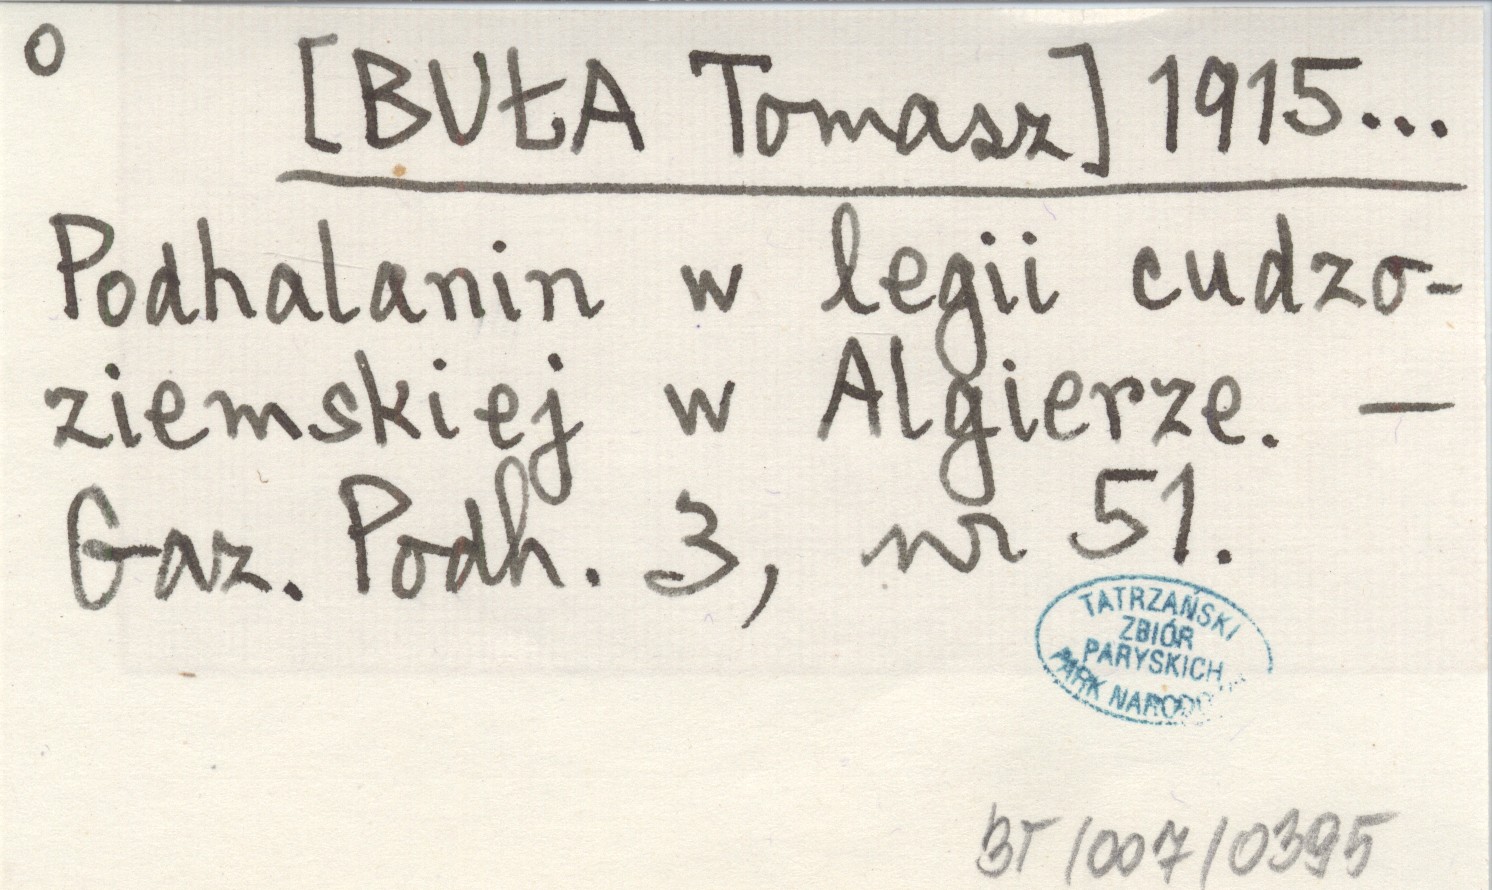 o
[BUŁA Tomasz] 1915...
Podhalanin w legii cudzo-
ziemskiej w Algierze. —
Gaz. Podh. 3, nr 51.
TATRZAŃSKI
ZBIÓR
PARYSKICH
PARK
BT/007/0395